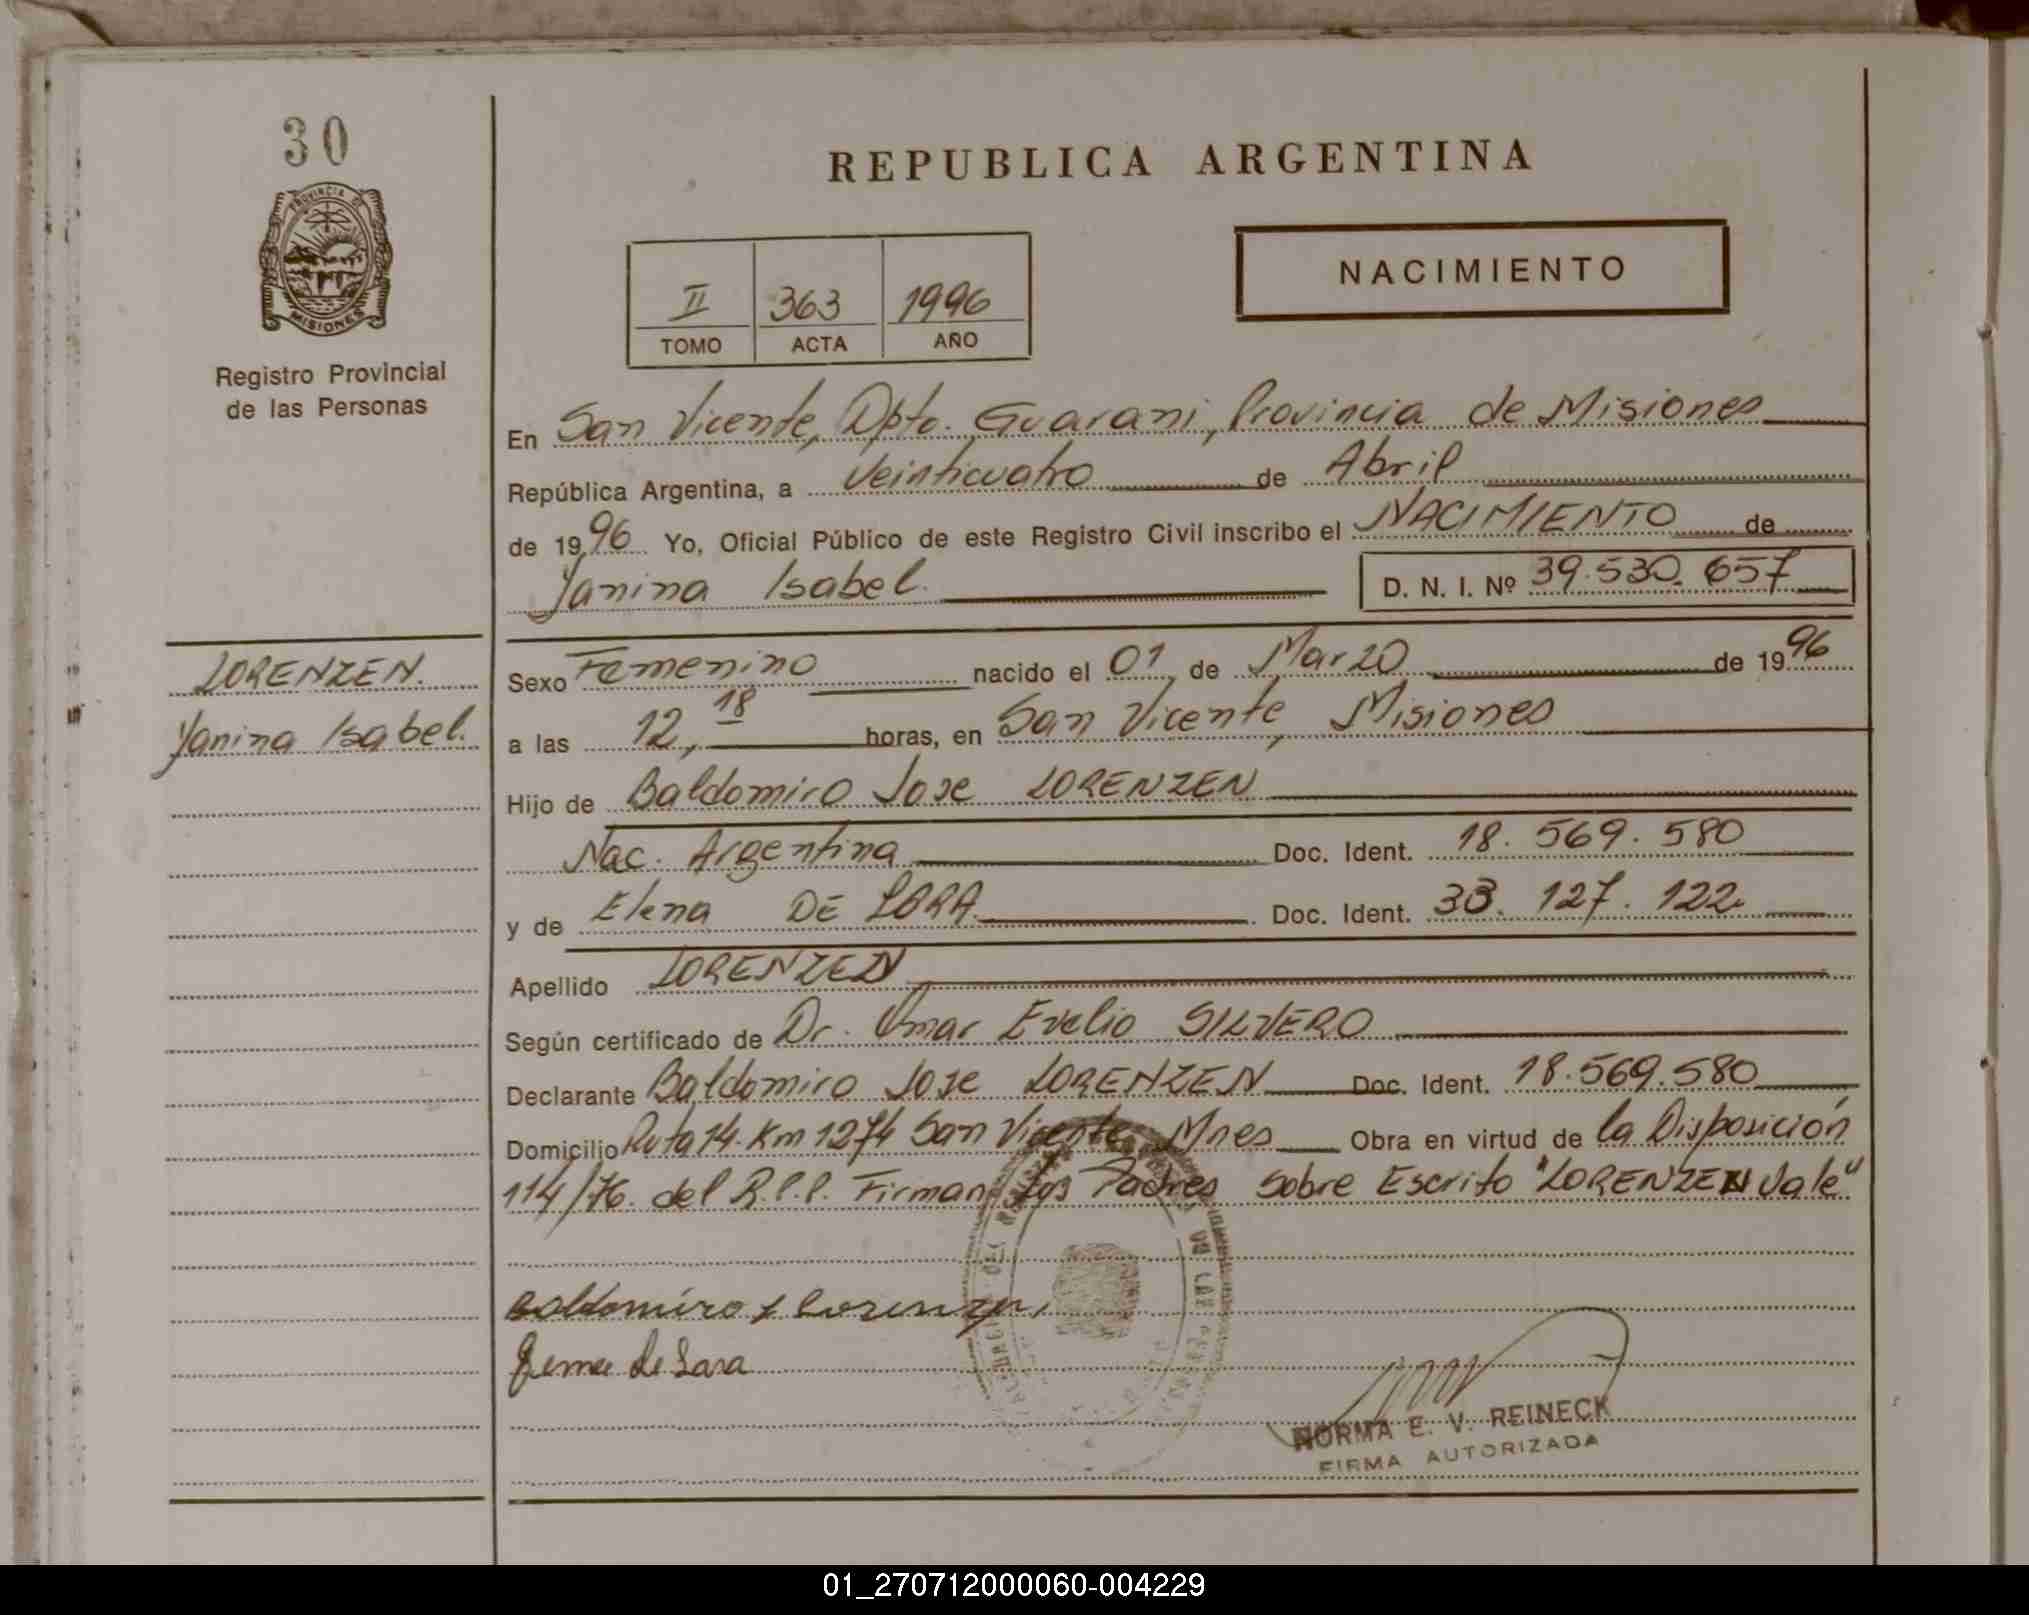 30
PROVINCIA DE
MISIONES
Registro Provincial
de las Personas
REPUBLICA ARGENTINA
II 363 1996
TOMO ACTA AÑO
NACIMIENTO
En San Vicente, Dpto. Guarani, Provincia de Misiones
República Argentina, a Veinticuatro de Abril
de 1996 Yo, Oficial Público de este Registro Civil inscribo el NACIMIENTO de
Yanina Isabel. D. N. I. Nº 39.530.657
LORENZEN.
Yanina Isabel.
Sexo Femenino nacido el 01 de Marzo de 1996
a las 12,18 horas, en San Vicente, Misiones
Hijo de Baldomiro Jose LORENZEN
Nac. Argentina Doc. Ident. 18.569.580
y de Elena DE LARA Doc. Ident. 33.127.122
Apellido LORENZEN
Según certificado de Dr. Omar Evelio SILVERO
Declarante Baldomiro Jose LORENZEN Doc. Ident. 18.569.580
Domicilio Ruta 14. Km 1274 San Vicente Mnes Obra en virtud de la Disposición
114/76. del R.P.P. Firman los Padres Sobre Escrito "LORENZEN Vale"
Baldomiro J Lorenzen
de Lara
NORMA E. V. REINECK
FIRMA AUTORIZADA
01_270712000060-004229